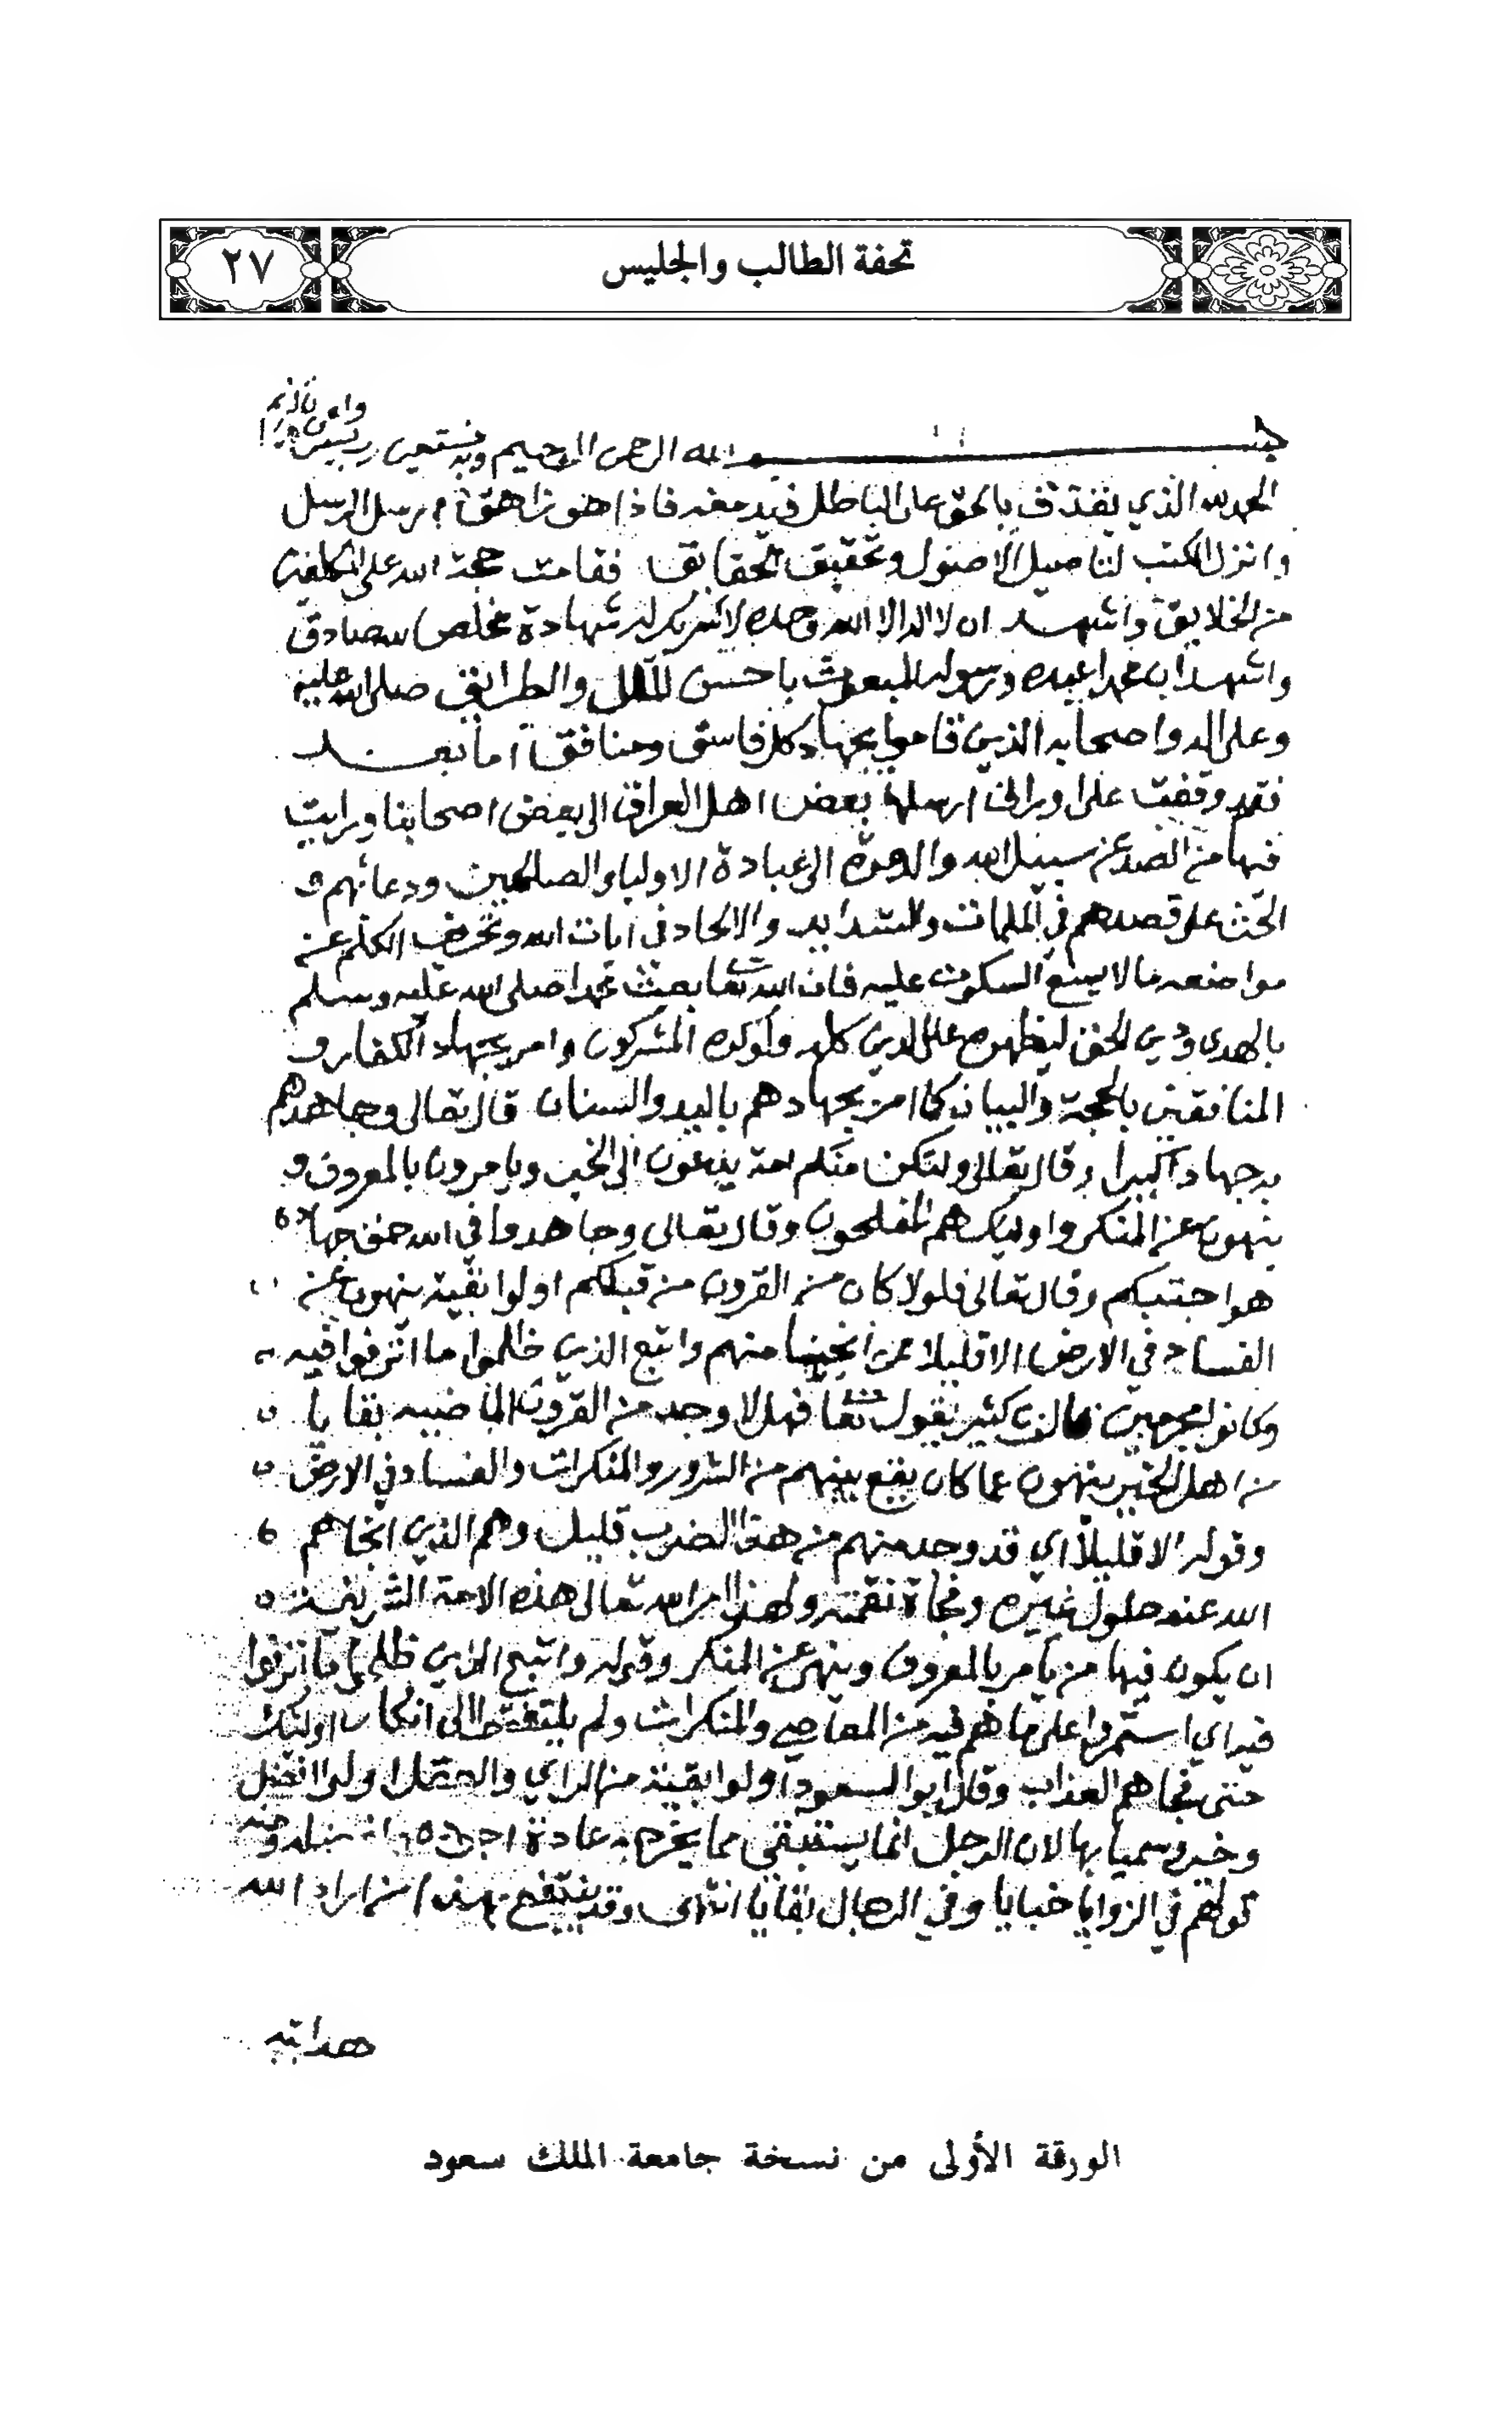 تحفة الطالب والجليس
٢٧
بسم الله الرحمن الرحيم وبه نستعين رب يسر
الحمد لله الذي يقذف بالحق على الباطل فيدمغه فاذا هو زاهق ارسل الرسل
وانزل الكتب لتاصيل الاصول وتحقيق الحقايق فقامت حجة الله على المكلفين
من الخلايق واشهد ان لا اله الا الله وحده لا شريك له شهادة مخلص لله صادق
واشهد ان محمدا عبده ورسوله المبعوث باحسن الملل والطرايق صلى الله عليه
وعلى اله واصحابه الذين قاموا بجهاد كل فاسق ومنافق اما بعد
فقد وقفت على اوراق ارسلها بعض اهل العراق الى بعض اصحابنا ورايت
فيها من الصد عن سبيل الله والدعوة الى عبادة الاولياء والصالحين ودعائهم و
الحث على قصدهم في الملمات والشدايد والالحاد في ايات الله وتحريف الكلم عن
مواضعه ما لا يسع السكوت عليه فان الله تعا بعث محمدا صلى الله عليه وسلم
بالهدى ودين الحق ليظهره على الدين كله ولو كره المشركون وامر بجهاد الكفار و
المنافقين بالحجة والبيان كما امر بجهادهم باليد والسنان قال تعالى وجاهدهم
به جهادا كبيرا وقال تعالى ولتكن منكم امة يدعون الى الخير ويامرون بالمعروف و
ينهون عن المنكر واوليك هم المفلحون وقال تعالى وجاهدوا في الله حق جهاده
هو اجتبيكم وقال تعالى فلولا كان من القرون من قبلكم اولوا بقية ينهون عن
الفساد في الارض الا قليلا ممن انجينا منهم واتبع الذين ظلموا ما اترفوا فيه
وكانوا مجرمين قال ابن كثير يقول تعا فهلا وجد من القرون الماضيه بقايا
من اهل الخير ينهون عما كان يقع بينهم من الشرور والمنكرات والفساد في الارض
وقوله الا قليلا اي قد وجد منهم من هذا الضرب قليل وهم الذين انجاهم
الله عند حلول غيره وفجاة نقمته ولهذا امر الله تعالى هذه الامة الشريفة
ان يكون فيها من يامر بالمعروف وينهى عن المنكر وقوله واتبع الذين ظلموا ما اترفوا
فيه اي استمروا على ما هم فيه من المعاصي والمنكرات ولم يلتفتوا الى انكار اوليك
حتى فجاهم العذاب وقال ابو السعود اولوا بقية من الراي والعقل اولوا فضل
وخير وسميا بها لان الرجل انما يستبقي مما يخرجه عادة اجوده وافضله ومنه
قولهم في الزوايا خبايا وفي الرجال بقايا انتهى وقد ينتفع بهذا من اراد الله
هدايته
الورقة الأولى من نسخة جامعة الملك سعود